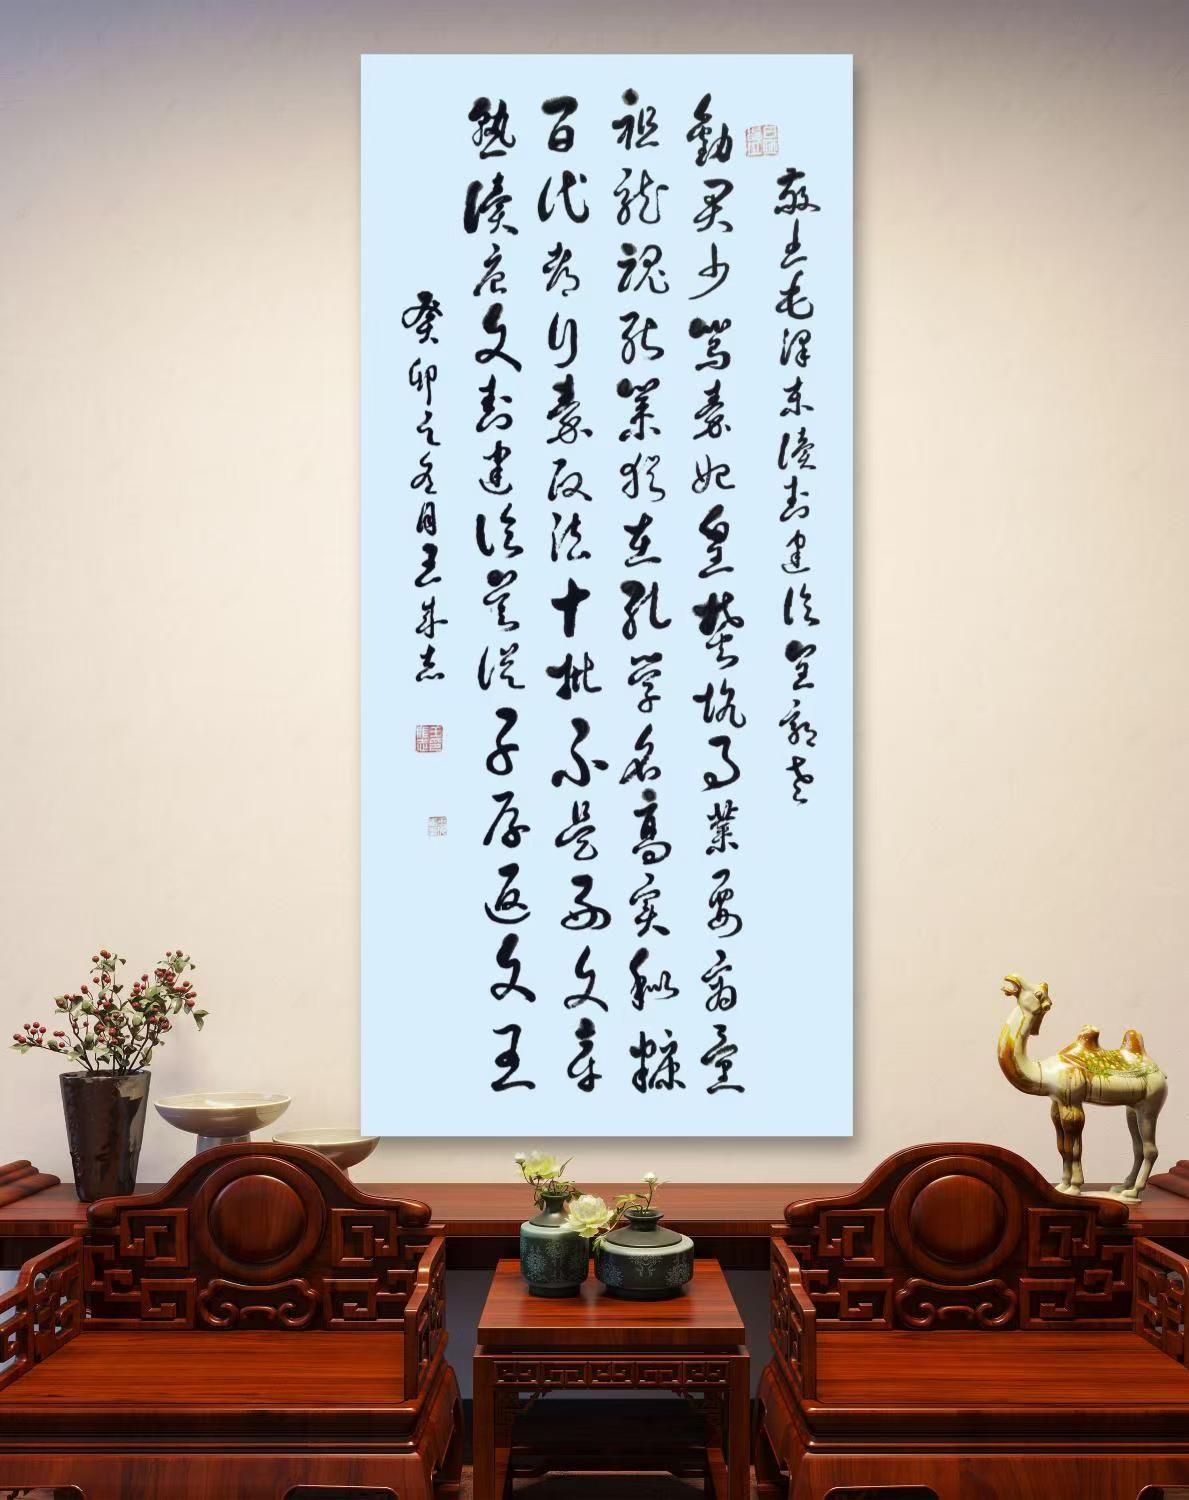 敬毛泽东读封建论呈郭老
勸君少骂秦始皇焚坑事業要商量
祖龙魂死業犹在孔学名高实秕糠
百代都行秦政法十批不是好文章
熟读唐文封建论莫从子厚返文王
癸卯之冬月王成志